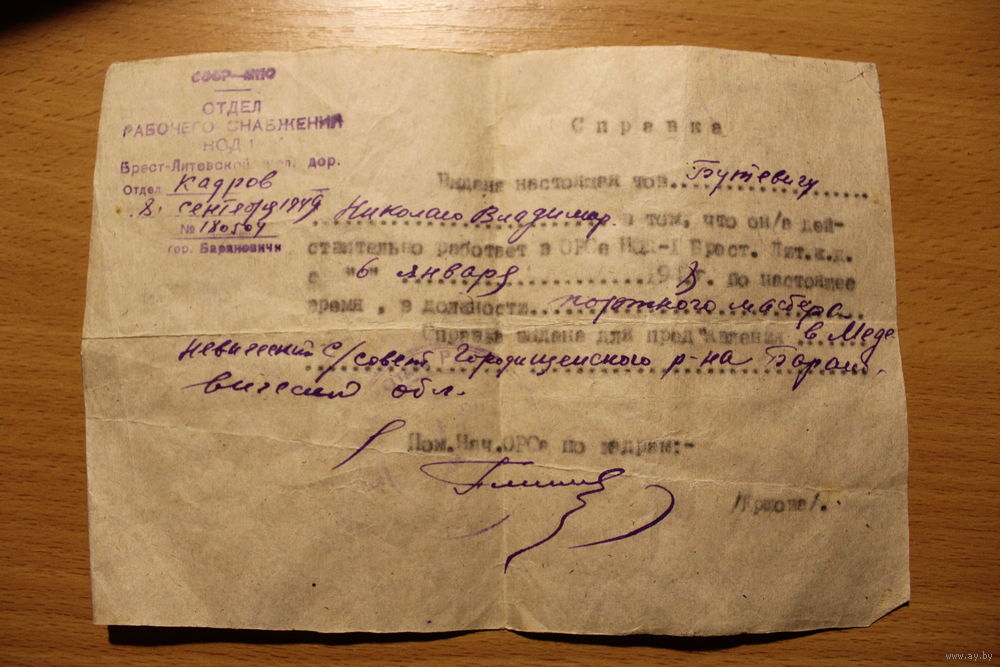 СССР—МПС
ОТДЕЛ
РАБОЧЕГО СНАБЖЕНИЯ
НОД 1
Брест-Литовской жел. дор.
Отдел кадров
8. сентября 1949
№ 180504
гор. Барановичи
Справка
Выдана настоящая тов. Бутевичу
Николаю Владимир. в том, что он/а дей-
ствительно работает в ОРСе НОД-1 Брест. Лит.ж.д.
с "6" января 1948г. по настоящее
время, в должности портного мастера
Справка выдана для пред'явления в Меде
невичский с/совет Городищенского р-на Барано
вичской обл.
Пом.Нач.ОРСа по кадрам:-